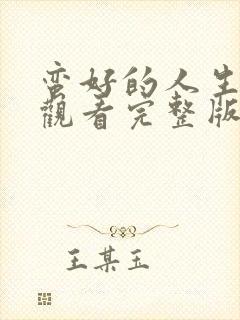 蛮好的人生
觀看完整版
王某玉